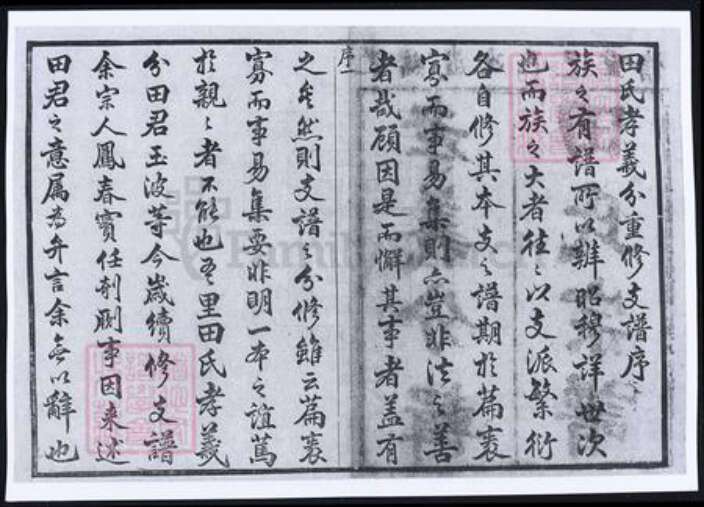 田氏孝義分重修支譜序
族之有譜所以辨昭穆詳世次
也而族之大者往往以支派繁衍
各自修其本支之譜期於篇袠
寡而事易集則亦豈非法之善
者哉顧因是而懈其事者蓋有
序一
之矣然則支譜之分修雖云篇袠
寡而事易集要非明一本之誼篤
於親親者不能也吾里田氏孝義
分田君玉波等今歲續修支譜
余宗人鳳春實任剞劂事因來述
田君之意屬為弁言余無以辭也